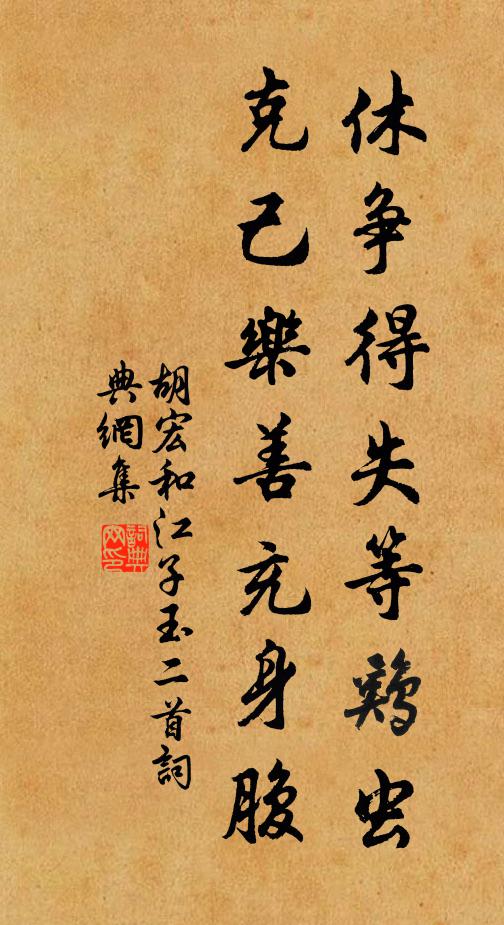 休争得失等鷄虫
克己樂善充身腹
胡宏和江子玉二首詞
典網集
詞典
网印